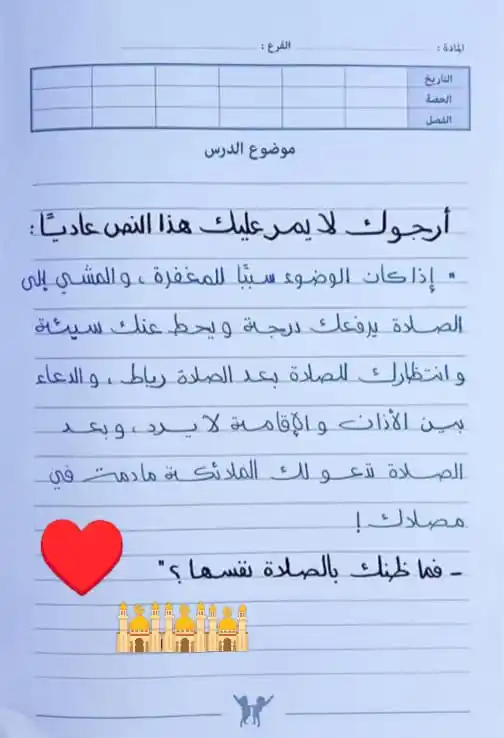 المادة : الفرع :
التاريخ
الحصة
الفصل
موضوع الدرس
أرجوك لا يمر عليك هذا النص عاديًا :
" إذا كان الوضوء سببًا للمغفرة ، والمشي إلى
الصلاة يرفعك درجة ويحط عنك سيئة
وانتظارك للصلاة بعد الصلاة رباط ، والدعاء
بين الأذان والإقامة لا يرد ، وبعد
الصلاة تدعو لك الملائكة مادمت في
مصلاك !
- فما ظنك بالصلاة نفسها ؟ "